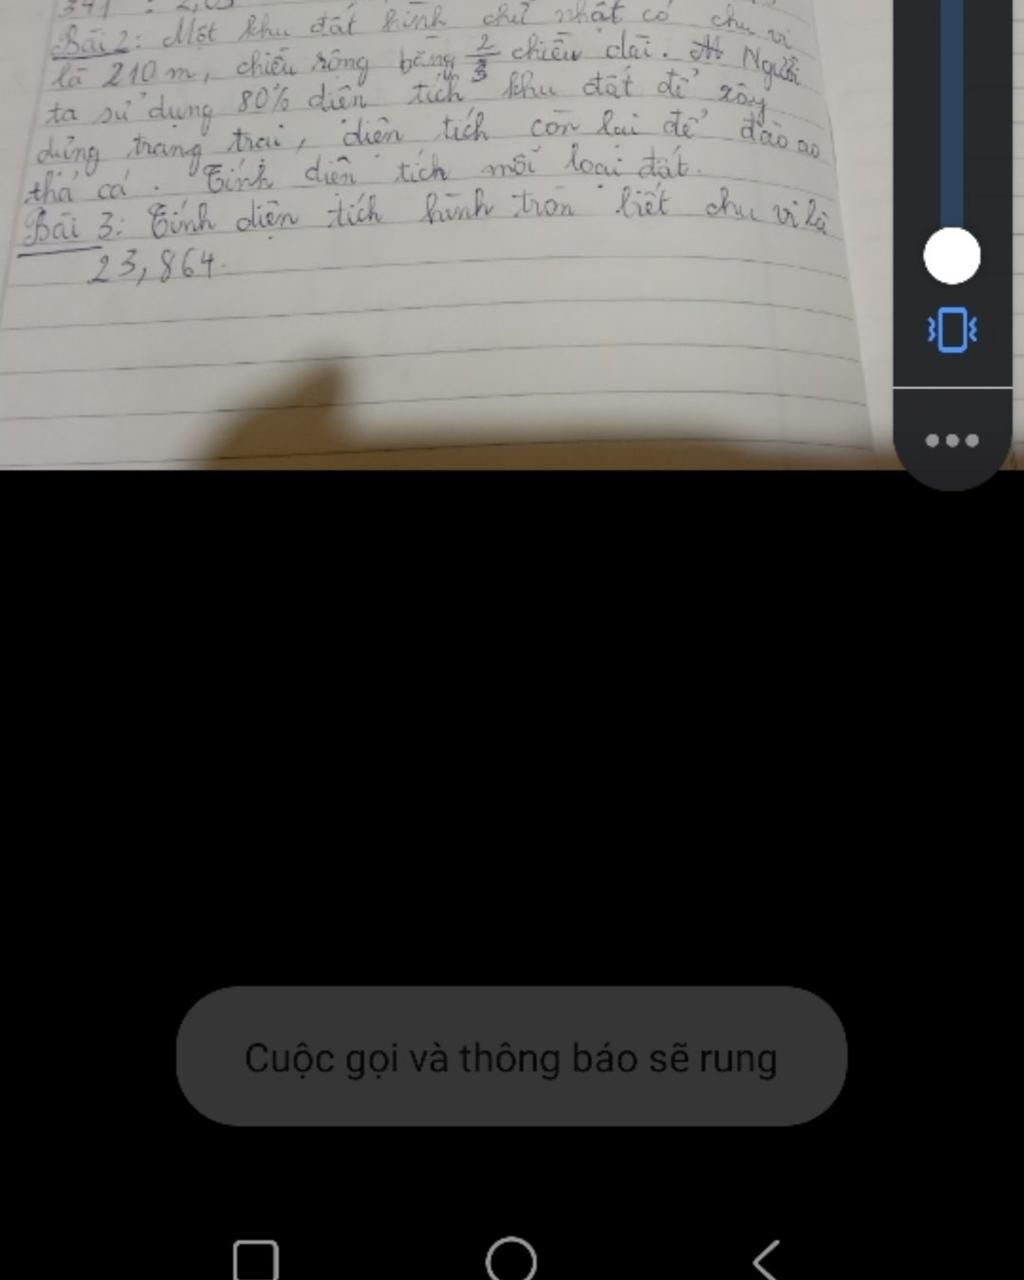 341 : 2,05
Bài 2: Một khu đất hình chữ nhật có chu vi
là 210 m, chiều rộng bằng 2/3 chiều dài. Người
ta sử dụng 80% diện tích khu đất để xây
dựng trang trại, diện tích còn lại để đào ao
thả cá. Tính diện tích mỗi loại đất.
Bài 3: Tính diện tích hình tròn biết chu vi là
23,864.
Cuộc gọi và thông báo sẽ rung